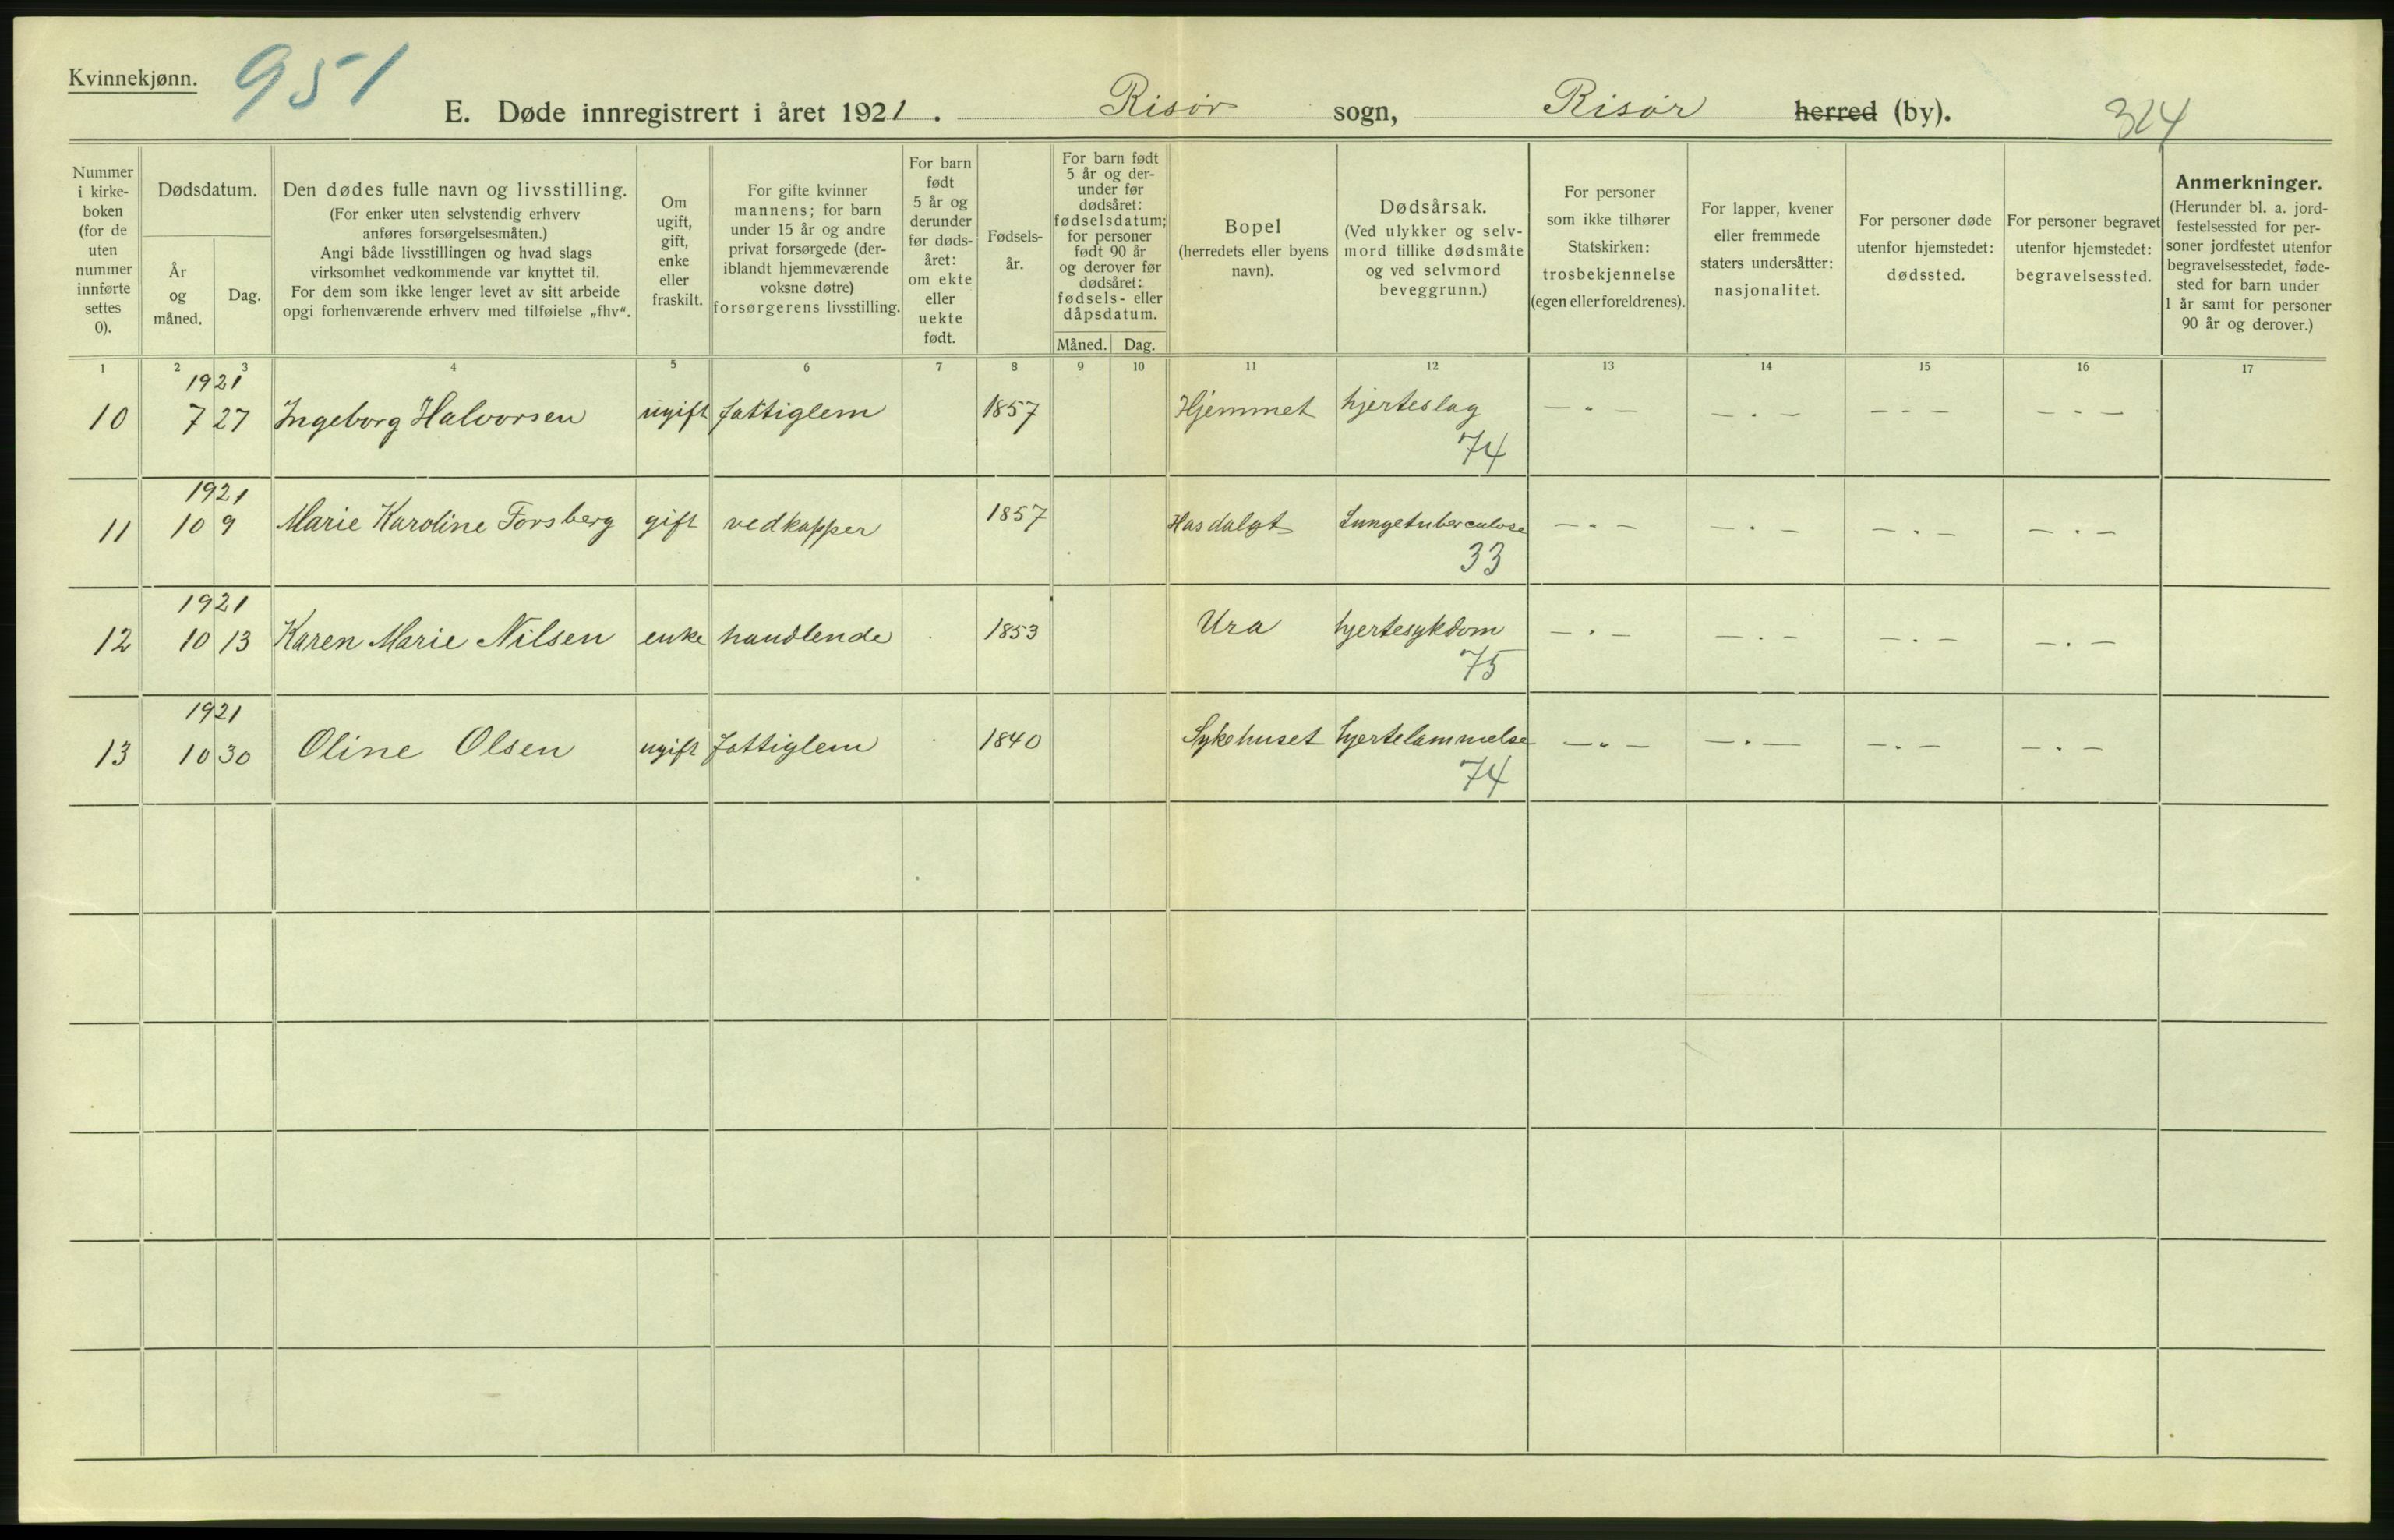 Kvinnekjønn.
951
E. Døde innregistrert i året 1921. Risør sogn, Risør herred (by).
324
Nummer i kirke- boken (for de uten nummer innførte settes 0).
Dødsdatum.
År og måned.
Dag.
Den dødes fulle navn og livsstilling.
(For enker uten selvstendig erhverv
anføres forsørgelsesmåten.)
Angi både livsstillingen og hvad slags
virksomhet vedkommende var knyttet til.
For dem som ikke lenger levet av sitt arbeide
opgi forhenværende erhverv med tilføielse „fhv“.
Om ugift, gift, enke eller fraskilt.
For gifte kvinner
mannens; for barn
under 15 år og andre
privat forsørgede (der-
iblandt hjemmeværende
voksne døtre)
forsørgerens livsstilling.
For barn født 5 år og derunder før døds- året: om ekte eller uekte født.
Fødsels- år.
For barn født
5 år og der-
under før
dødsåret:
fødselsdatum;
for personer
født 90 år
og derover før
dødsåret:
fødsels- eller
dåpsdatum.
Måned. Dag.
Bopel
(herredets eller byens
navn).
Dødsårsak.
(Ved ulykker og selv-
mord tillike dødsmåte
og ved selvmord
beveggrunn.)
For personer
som ikke tilhører
Statskirken:
trosbekjennelse
(egen eller foreldrenes).
For lapper, kvener
eller fremmede
staters undersåtter:
nasjonalitet.
For personer døde
utenfor hjemstedet:
dødssted.
For personer begravet
utenfor hjemstedet:
begravelsessted.
Anmerkninger.
(Herunder bl. a. jord-
festelsessted for per-
soner jordfestet utenfor
begravelsesstedet, føde-
sted for barn under
1 år samt for personer
90 år og derover.)
1 2 3 4 5 6 7 8 9 10 11 12 13 14 15 16 17
1921
10 7 27 Ingeborg Halvorsen ugift fattiglem 1857 Hjemmet hjerteslag — " — — . — — . — — . —
74
1921
11 10 9 Marie Karoline Forsberg gift vedkapper 1857 Hasdalgt Lungetuberculose — " — — . — — . — — . —
33
1921
12 10 13 Karen Marie Nilsen enke handlende 1853 Ura hjertesykdom — . — — . — — . — — . —
75
1921
13 10 30 Oline Olsen ugift fattiglem 1840 Sykehuset hjertelammelse — " — — . — — . — — . —
74